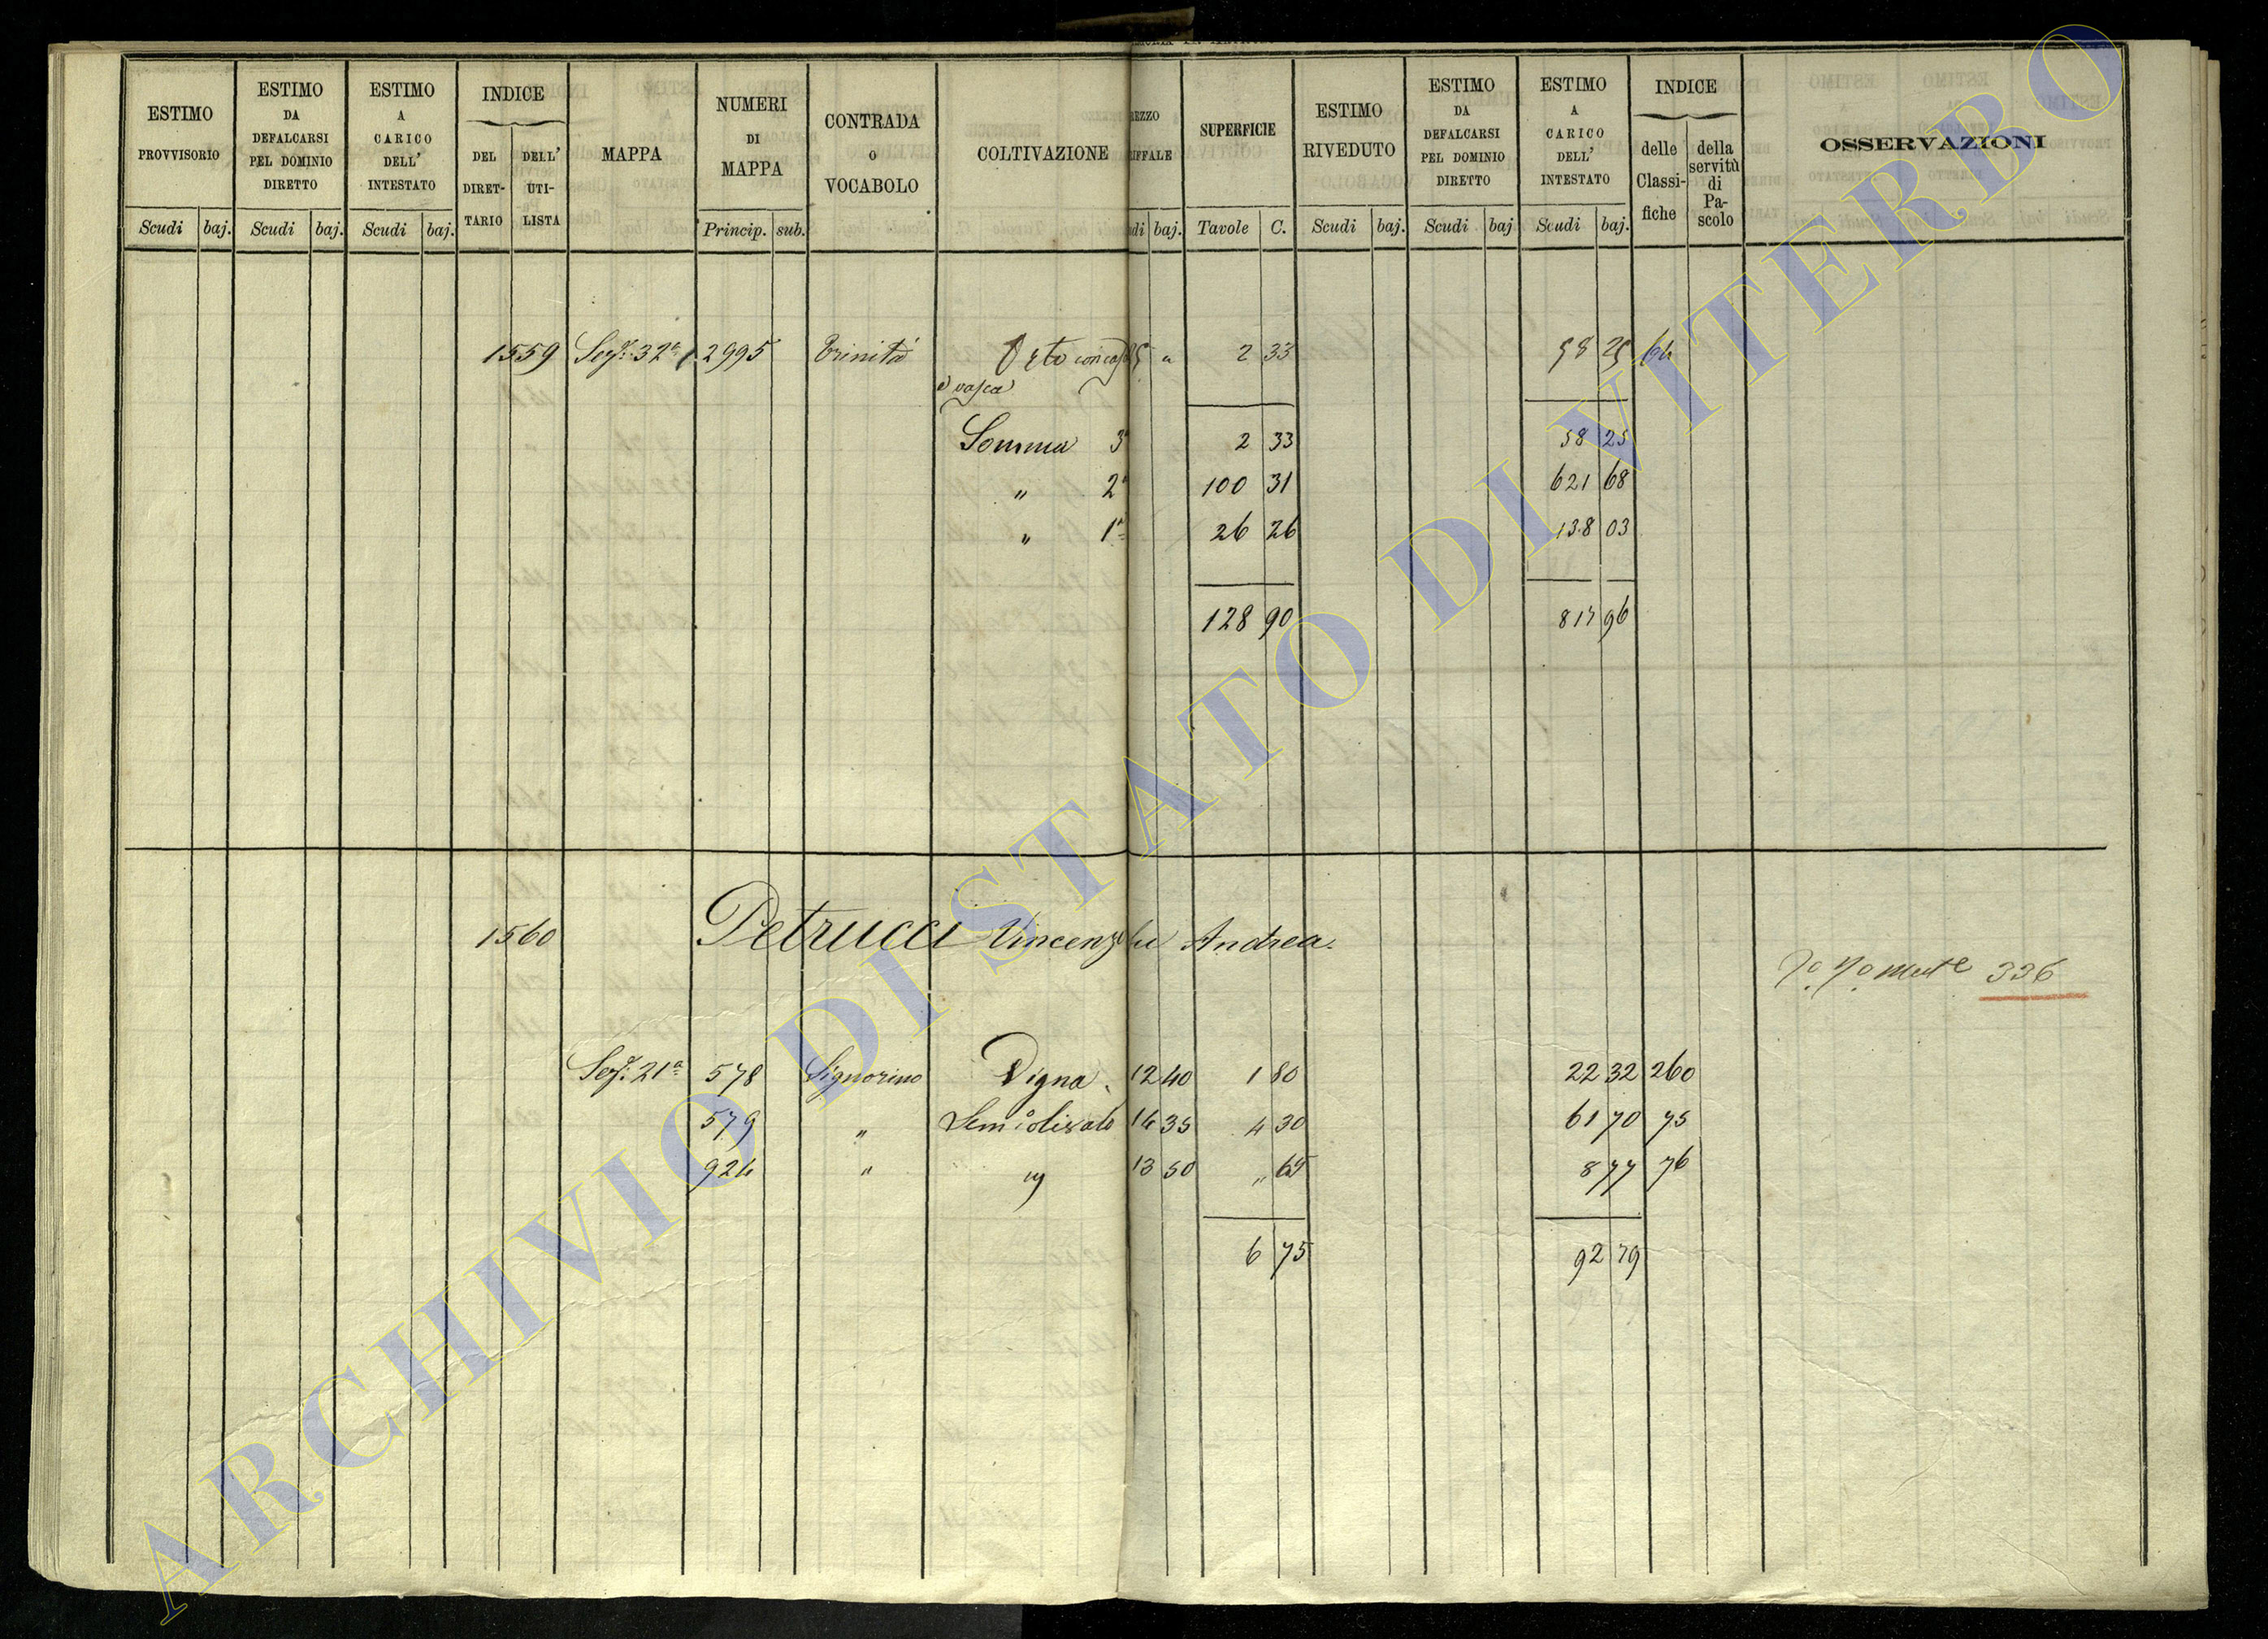 ESTIMO PROVVISORIO
ESTIMO DA DEFALCARSI PEL DOMINIO DIRETTO
ESTIMO A CARICO DELL' INTESTATO
INDICE
DEL DIRET-TARIO
DELL' UTI-LISTA
MAPPA
NUMERI DI MAPPA
CONTRADA O VOCABOLO
COLTIVAZIONE
REZZO
RIFFALE
SUPERFICIE
ESTIMO RIVEDUTO
ESTIMO DA DEFALCARSI PEL DOMINIO DIRETTO
ESTIMO A CARICO DELL' INTESTATO
INDICE
delle Classi-fiche
della servitù di Pa-scolo
OSSERVAZIONI
Scudi baj. Scudi baj. Scudi baj. Princip. sub. di baj. Tavole C. Scudi baj. Scudi baj Scudi baj.
1559 Seze. 32a 2995 Trinità Orto con 25 " 2 33 58 25 64
e vasca
Somma 3a 2 33 58 25
" 2a 100 31 621 68
" 1a 26 26 138 03
128 90 817 96
1560 Petrucci Vincenzo fu Andrea.
336
Seze. 21a 578 Signorino Vigna 12 40 1 80 22 32 260
579 " Semo olivato 14 35 4 30 61 70 75
924 " 13 50 " 65 8 77 76
6 75 92 79
ARCHIVIO DI STATO DI VITERBO